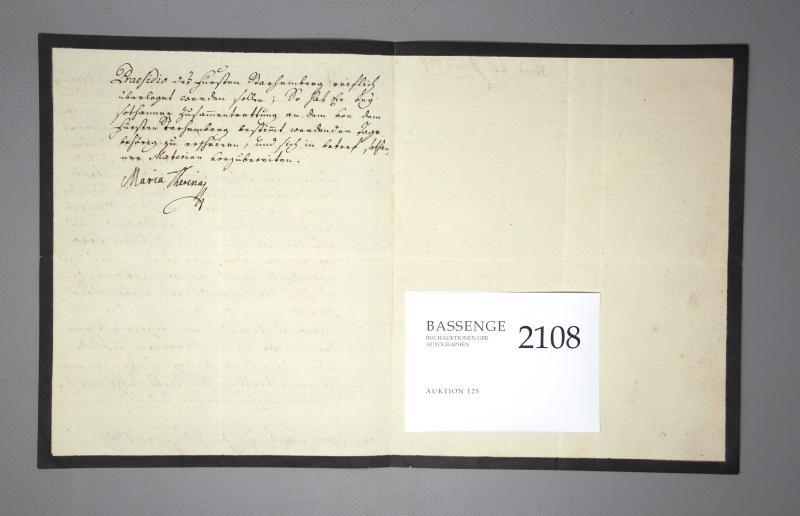 Praesidio des Fürsten Starhemberg reiflich
überleget werden sollen; So hat Er bey
sothanner Zusammentrettung an dem von dem
Fürsten Starhemberg bestimt werdenden Tage
behörig zu erscheinen, und sich in betref sothan-
ner Materien vorzubereiten.
Maria Theresia
BASSENGE
BUCHAUKTIONEN GBR
AUTOGRAPHEN
2108
AUKTION 125